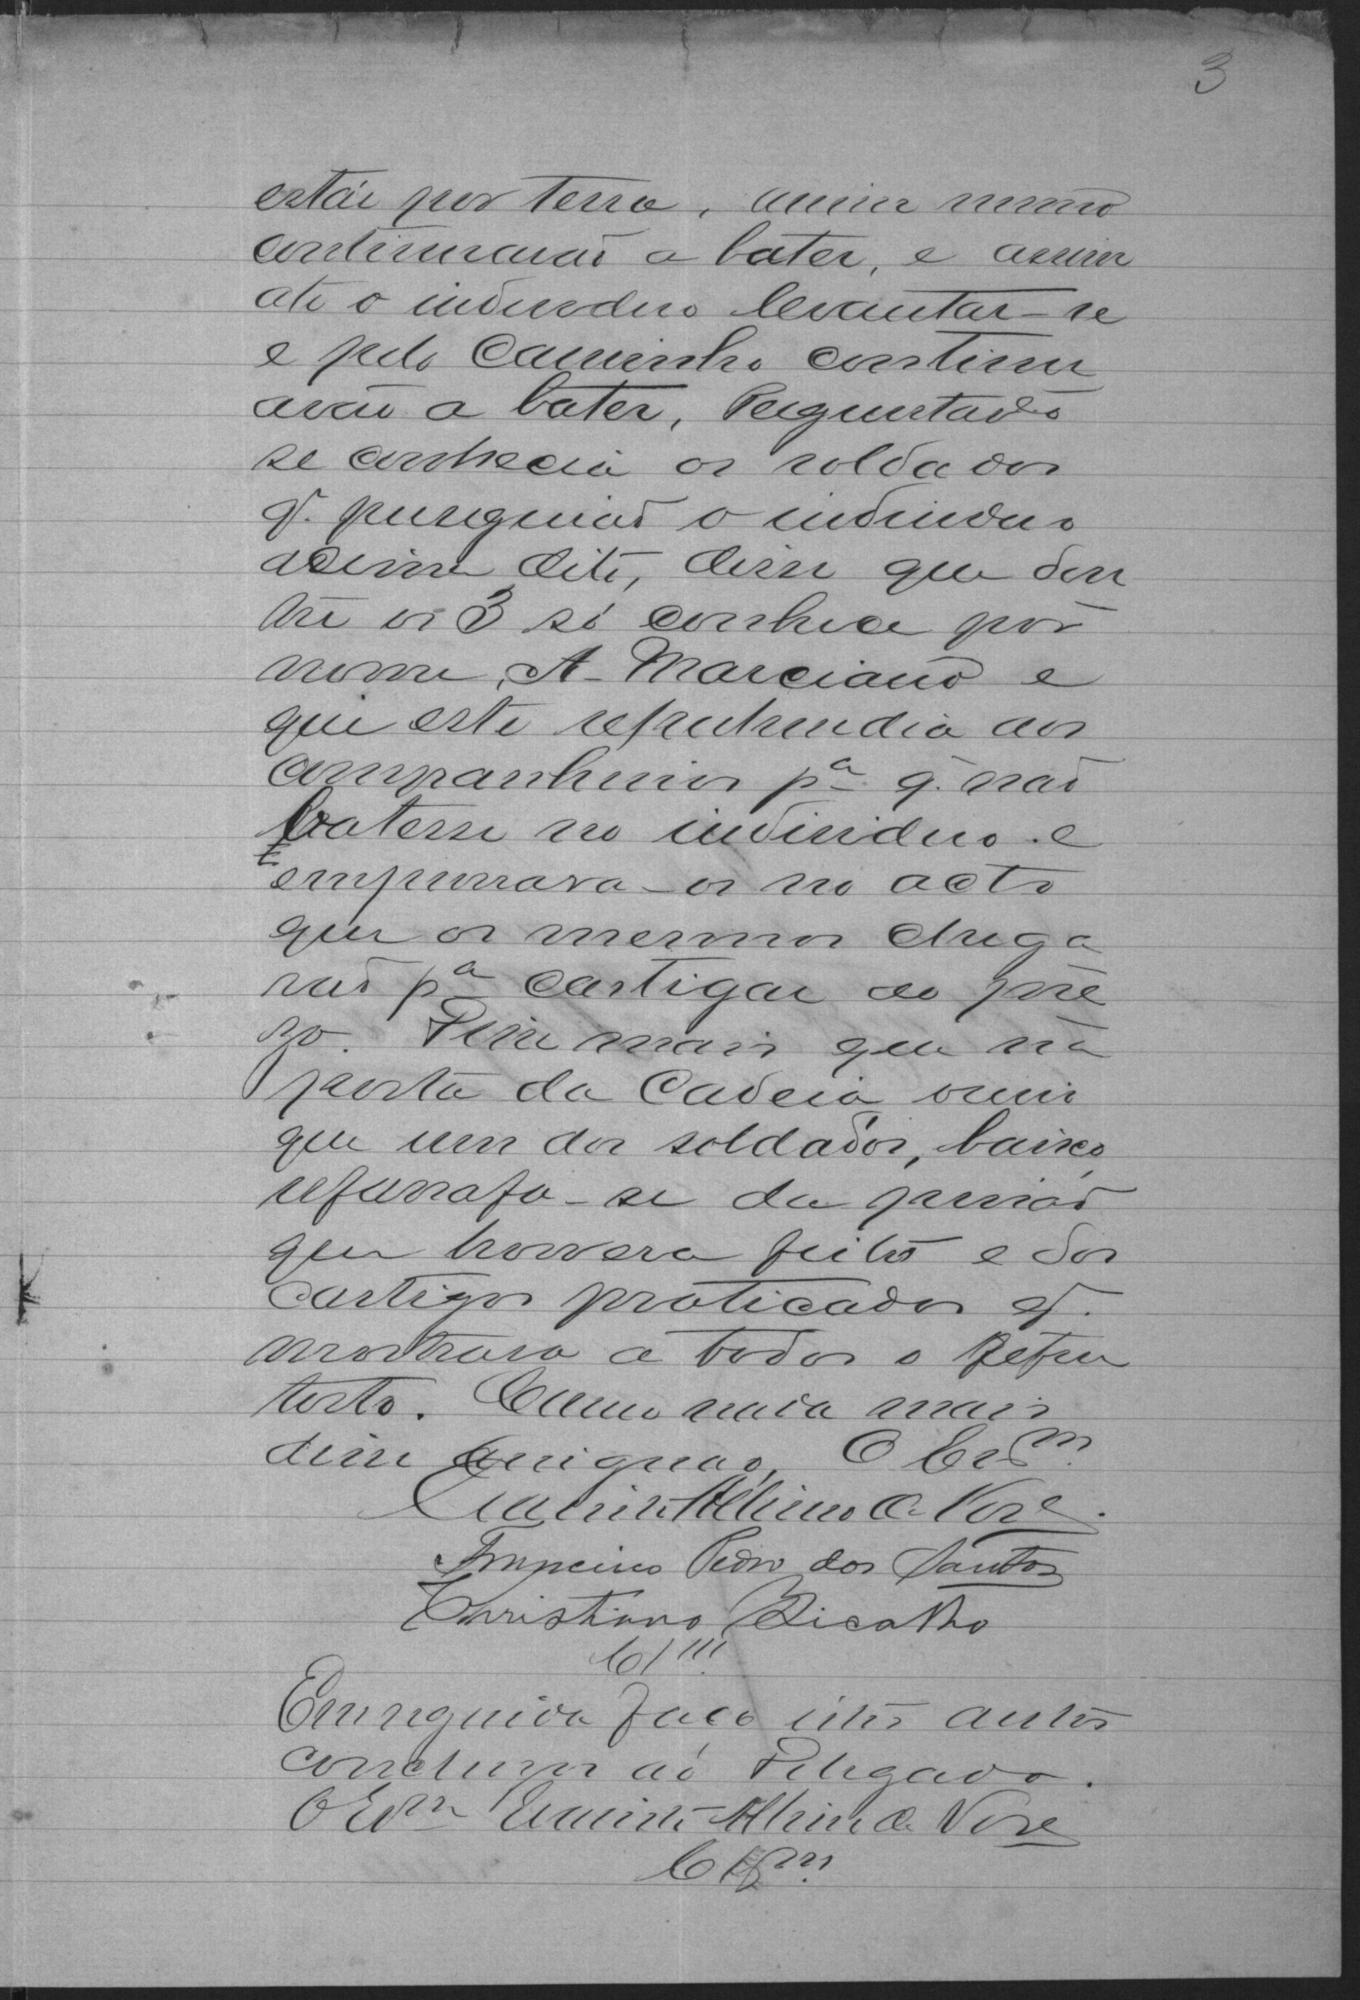 3
estár por terra, assim mesmo
continuarão a bater, e assim
ate o individuo levantar-se
e pelo caminho continu
avão a bater, Perguntado
se conhecia os soldados
q. perseguiaõ o individuo
acima dito, disse que den
tre os 3 só conhece por
nome, A. Marciano e
que este reprehendia aos
companheiros pª q. naõ
batesse no individuo e
empurrava-os no acto
que os mesmos chega
vaõ pª castigar ao pre
zo. Disse mais que na
porta da Cadeia ouvio
que um dos soldados, baixo,
ufanava-se da prisaõ
que houvera feito e dos
castigos praticados q.
mostrava a todos o
E como nada mais
disse assignaõ, O Escm.
Francisco Pedro dos Santos
Christiano Bicalho
Clm.
Em seguida faço estes autos
conclusos ao Delegado.
O Escm
Clsm.